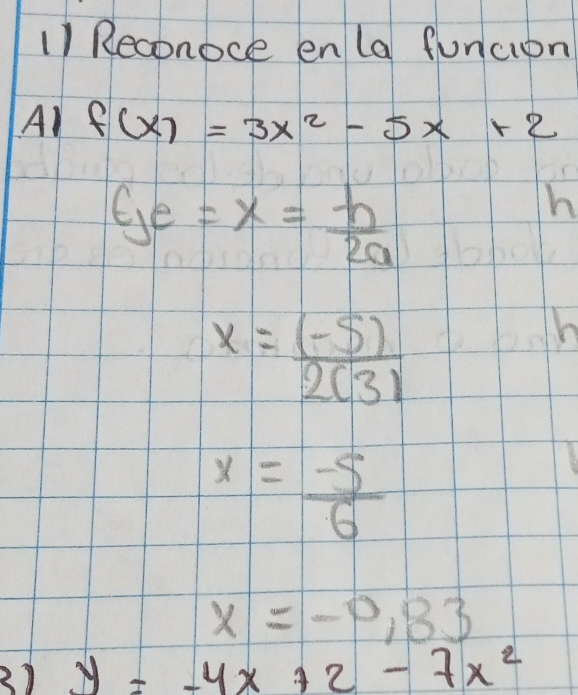 1) Reconoce en la función
A) f(x) = 3x² - 5x + 2
Eje = x = -b/2a h
x = (-5)/2(3) h
x = -5/6
x = -0,83
B) y = -4x + 2 - 7x²